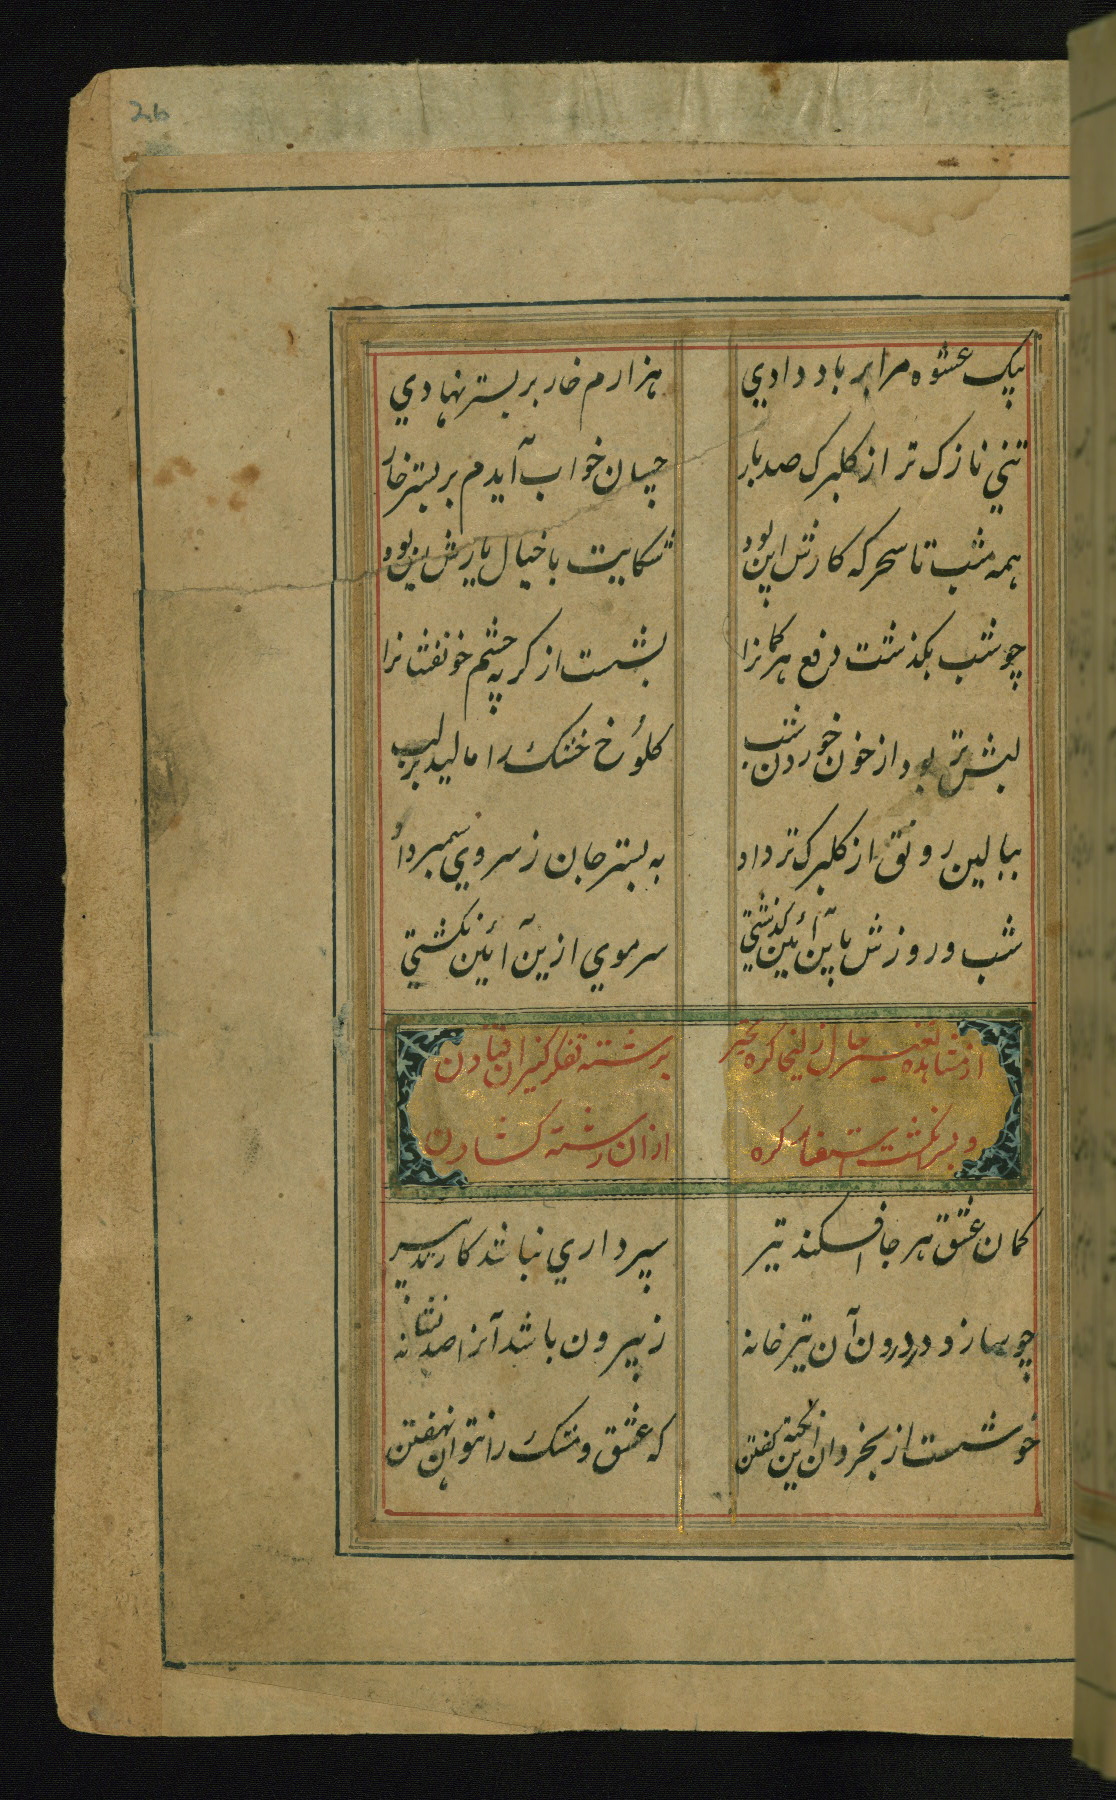 26
بیک عشوه مرا بر باد دادي
هزارم خار بر بستر نهادي
تني نازک تر از کلبرک صد بار
چسان خواب آیدم بر بستر خار
همه شب تا سحرکه کارش این بود
شکایت با خیال یارش این بود
چو شب بکذشت دفع هر کمانرا
بشست از کریه چشم خونفشانرا
لبش تر بود از خون خوردن شب
کلوخ خشک را مالید بر لب
ببالین رونق از کلبرک تر داد
به بستر جان ز سروي سمبر داد
شب و روزش باین آئین کذشتي
سر موي ازین آئین نکشتي
از مشاهده تغییر حال زلیخا کره تحیر
بر رشته تفکر کنیزان فتادن
و بسرانکشت استفسار کره
از ان رشته کشادن
کمان عشق هر جا افکند تیر
سپر داري نباشد کار تدبیر
چو سازد در درون آن تیر خانه
ز بیرون باشد آنرا صد نشانه
خوشست از بخردان این نکته کفتن
که عشق و مشک را نتوان نهفتن